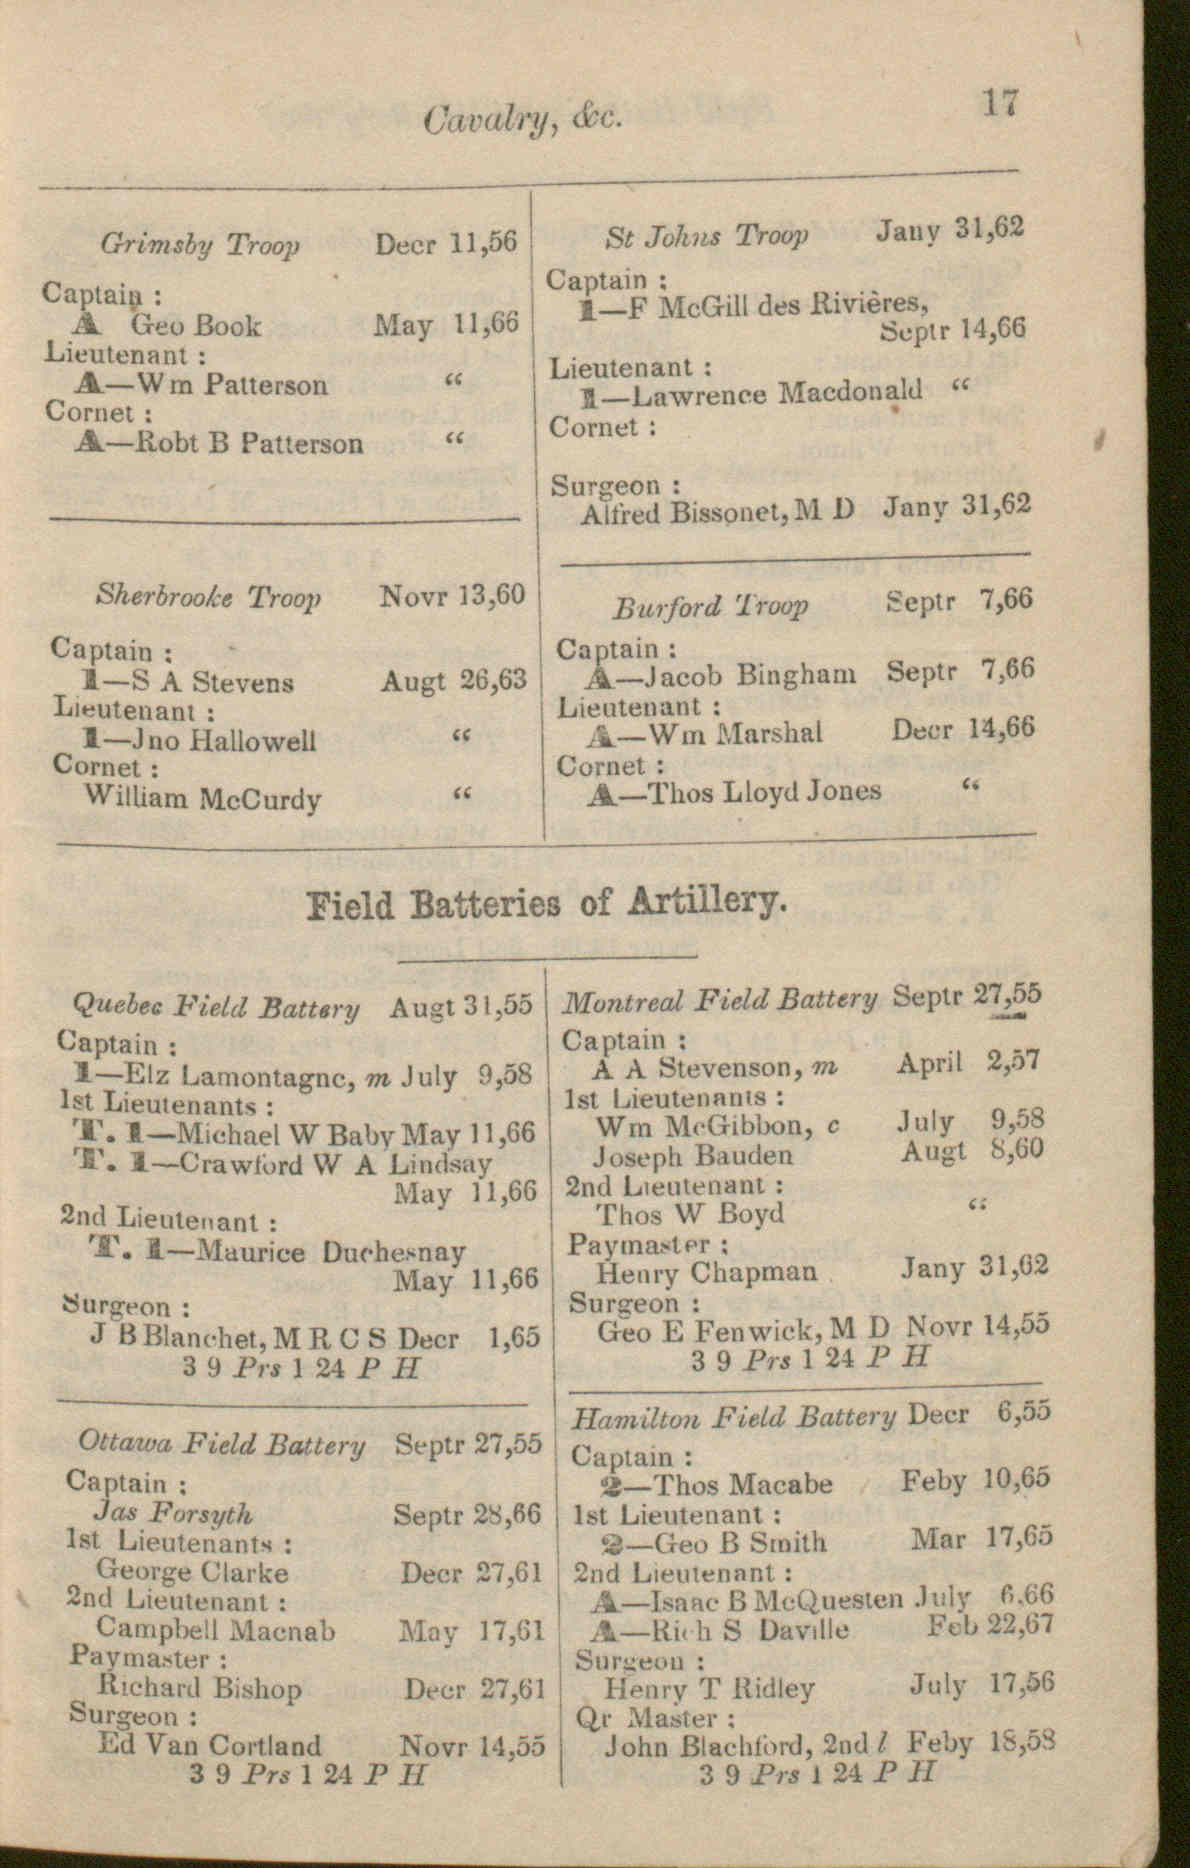 Cavalry, &c.
17
Grimsby Troop Decr 11,56
Captain :
A Geo Book May 11,66
Lieutenant :
A—Wm Patterson “
Cornet :
A—Robt B Patterson “
Sherbrooke Troop Novr 13,60
Captain :
1—S A Stevens Augt 26,63
Lieutenant :
1—Jno Hallowell “
Cornet :
William McCurdy “
St Johns Troop Jany 31,62
Captain :
1—F McGill des Rivières,
Septr 14,66
Lieutenant :
1—Lawrence Macdonald “
Cornet :
Surgeon :
Alfred Bissonet, M D Jany 31,62
Burford Troop Septr 7,66
Captain :
A—Jacob Bingham Septr 7,66
Lieutenant :
A—Wm Marshal Decr 14,66
Cornet :
A—Thos Lloyd Jones “
Field Batteries of Artillery.
Quebec Field Battery Augt 31,55
Captain :
1—Elz Lamontagne, m July 9,58
1st Lieutenants :
T. 1—Michael W Baby May 11,66
T. 1—Crawford W A Lindsay
May 11,66
2nd Lieutenant :
T. 1—Maurice Duchesnay
May 11,66
Surgeon :
J B Blanchet, M R C S Decr 1,65
3 9 Prs 1 24 P H
Ottawa Field Battery Septr 27,55
Captain :
Jas Forsyth Septr 28,66
1st Lieutenants :
George Clarke Decr 27,61
2nd Lieutenant :
Campbell Macnab May 17,61
Paymaster :
Richard Bishop Decr 27,61
Surgeon :
Ed Van Cortland Novr 14,55
3 9 Prs 1 24 P H
Montreal Field Battery Septr 27,55
Captain :
A A Stevenson, m April 2,57
1st Lieutenants :
Wm McGibbon, c July 9,58
Joseph Bauden Augt 8,60
2nd Lieutenant :
Thos W Boyd “
Paymaster :
Henry Chapman Jany 31,62
Surgeon :
Geo E Fenwick, M D Novr 14,55
3 9 Prs 1 24 P H
Hamilton Field Battery Decr 6,55
Captain :
2—Thos Macabe Feby 10,65
1st Lieutenant :
2—Geo B Smith Mar 17,65
2nd Lieutenant :
A—Isaac B McQuesten July 6,66
A—Rich S Daville Feb 22,67
Surgeon :
Henry T Ridley July 17,56
Qr Master :
John Blachford, 2nd l Feby 18,58
3 9 Prs 1 24 P H